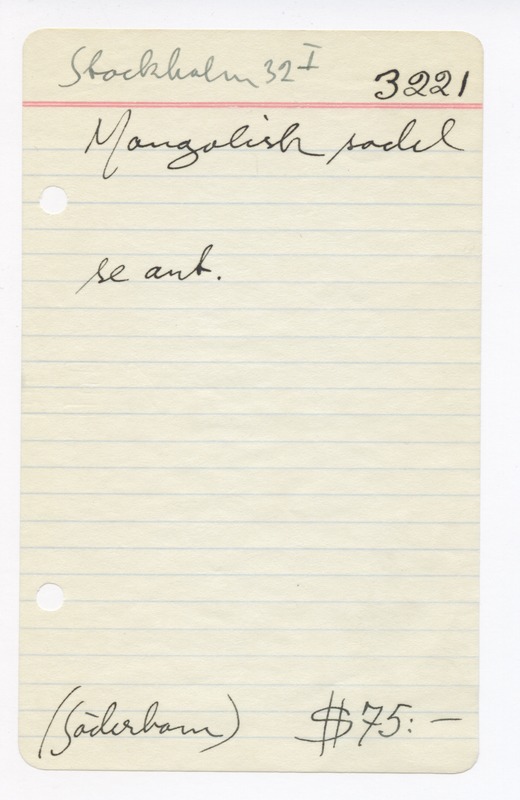 Stockholm 32 I 3221
Mongolisk sadel
se ant.
(Söderbom) $75:-